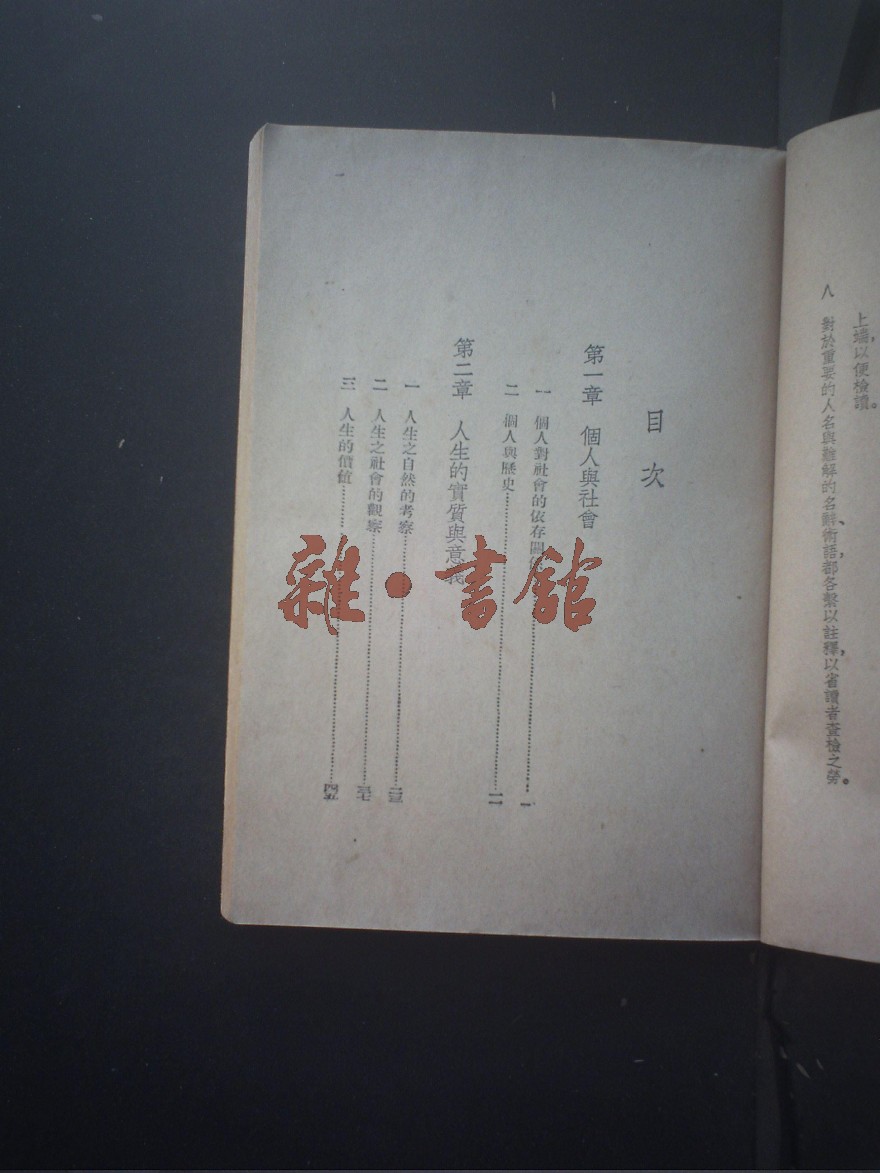 上端，以便檢讀。
八 對於重要的人名與難解的名辭、術語，都各繫以註釋，以省讀者查檢之勞。
目次
第一章 個人與社會
一 個人對社會的依存關係……一
二 個人與歷史……一一
第二章 人生的實質與意義
一 人生之自然的考察……二三
二 人生之社會的觀察……三七
三 人生的價值……四五
雜·書館